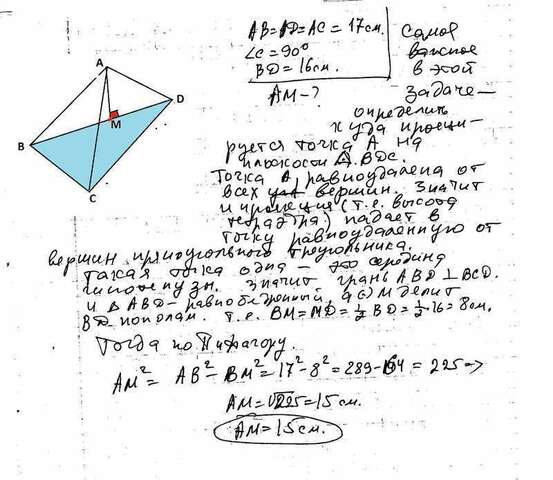 AB=AD=AC=17см.
∠C=90°
BD=16см.
AM-?
Самое
важное
в этой
задаче-
определить
куда проеци-
руется точка A на
плоскость Δ BDC.
Точка A, равноудалена от
всех вершин. Значит
и проекция (т.е. высота
тетраэдра) падает в
точку равноудаленную от
вершин прямоугольного треугольника.
Такая точка одна - это середина
гипотенузы. Значит грань ABD ⊥ BCD.
и Δ ABD - равнобедренный, а(·) M делит
BD пополам. т.е. BM=MD=½ BD=½·16=8см.
Тогда по Пифагору.
AM²= AB²-BM²=17²-8²=289-64=225→
AM=√225=15см.
AM=15см.
A
D
M
B
C